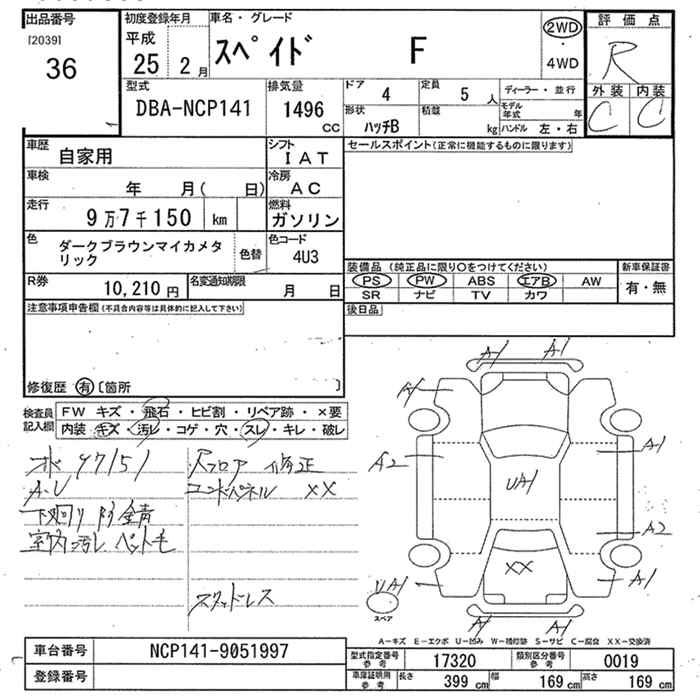 出品番号 初度登録年月 車名・グレード 評価点
[2039] 平成 スペイド F 2WD
36 25 2月 ・ R
4WD
型式 排気量 ドア 定員 ディーラー・並行 外装 内装
DBA-NCP141 1496 CC 4 5人 モデル年式 年 C C
形状 積載
ハッチB kg ハンドル 左・右
車歴 シフト セールスポイント(正常に機能するものに限ります)
自家用 IAT
車検 冷房
年 月( 日) AC
走行 燃料
9万7千150 km ガソリン
色 色替 色コード
ダークブラウンマイカメタリック 4U3
装備品 (純正品に限り○をつけてください) 新車保証書
R券 名変通知期限 PS PW ABS エアB AW 有・無
10,210円 月 日 SR ナビ TV カワ
注意事項申告欄(不具合内容等は具体的に記入して下さい) 後日品
修復歴 有 〔箇所 〕
検査員記入欄 FW キズ・飛石・ヒビ割・リペア跡・×要
内装 キズ・汚レ・コゲ・穴・スレ・キレ・破レ
97151 Rフロア 修正
A.U XX
下廻り
室内汚レ ペット毛
スタッドレス
A1 A1
A1
A2 A1
UA1
A2
XX
UA1 A1
スペア
A1 A1
A－キズ E－エクボ U－凹み W－補修跡 S－サビ C－腐食 XX－交換済
車台番号 NCP141-9051997 型式指定番号 参考 17320 類別区分番号 参考 0019
登録番号 車庫証明用 参考 長さ 399 cm 幅 169 cm 高さ 169 cm